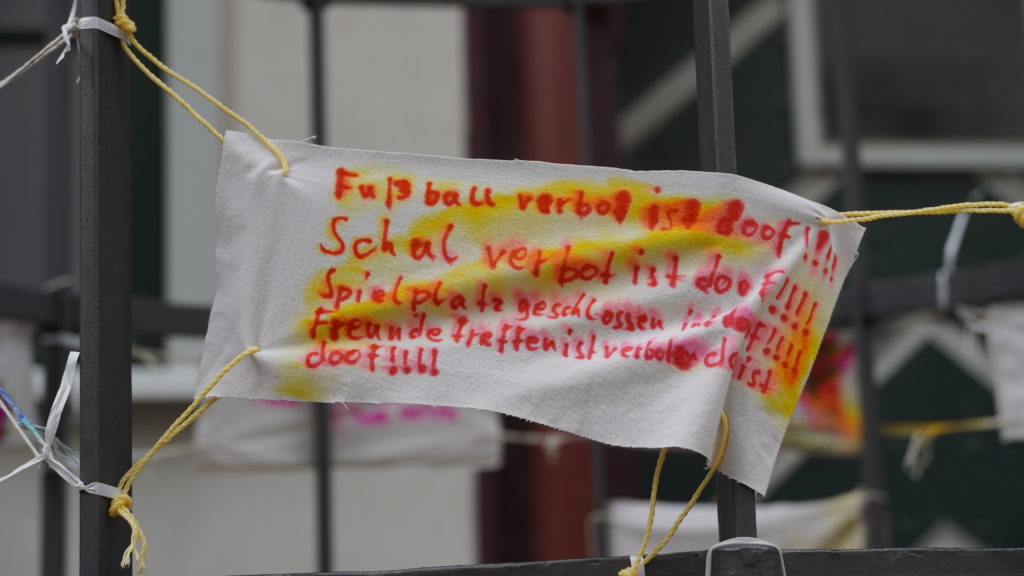 Fußball verbot ist doof!!!!
Schal verbot ist doof!!!!
Spielplatz geschlossen ist doof!!!!
Freunde treffen ist verboten das ist
doof!!!!